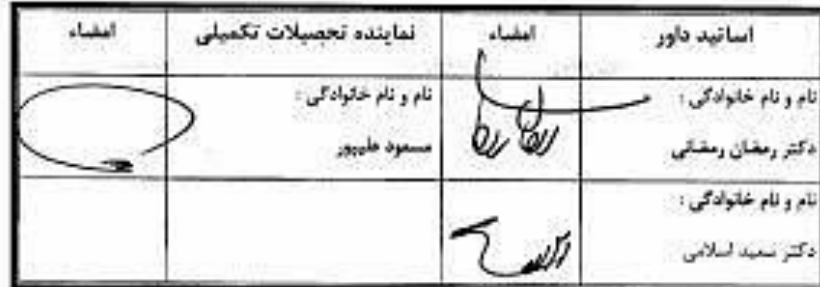 اساتید داور امضاء نماینده تحصیلات تکمیلی امضاء
نام و نام خانوادگی : نام و نام خانوادگی :
دکتر رمضان رمضانی مسعود علیپور
نام و نام خانوادگی :
دکتر سعید اسلامی